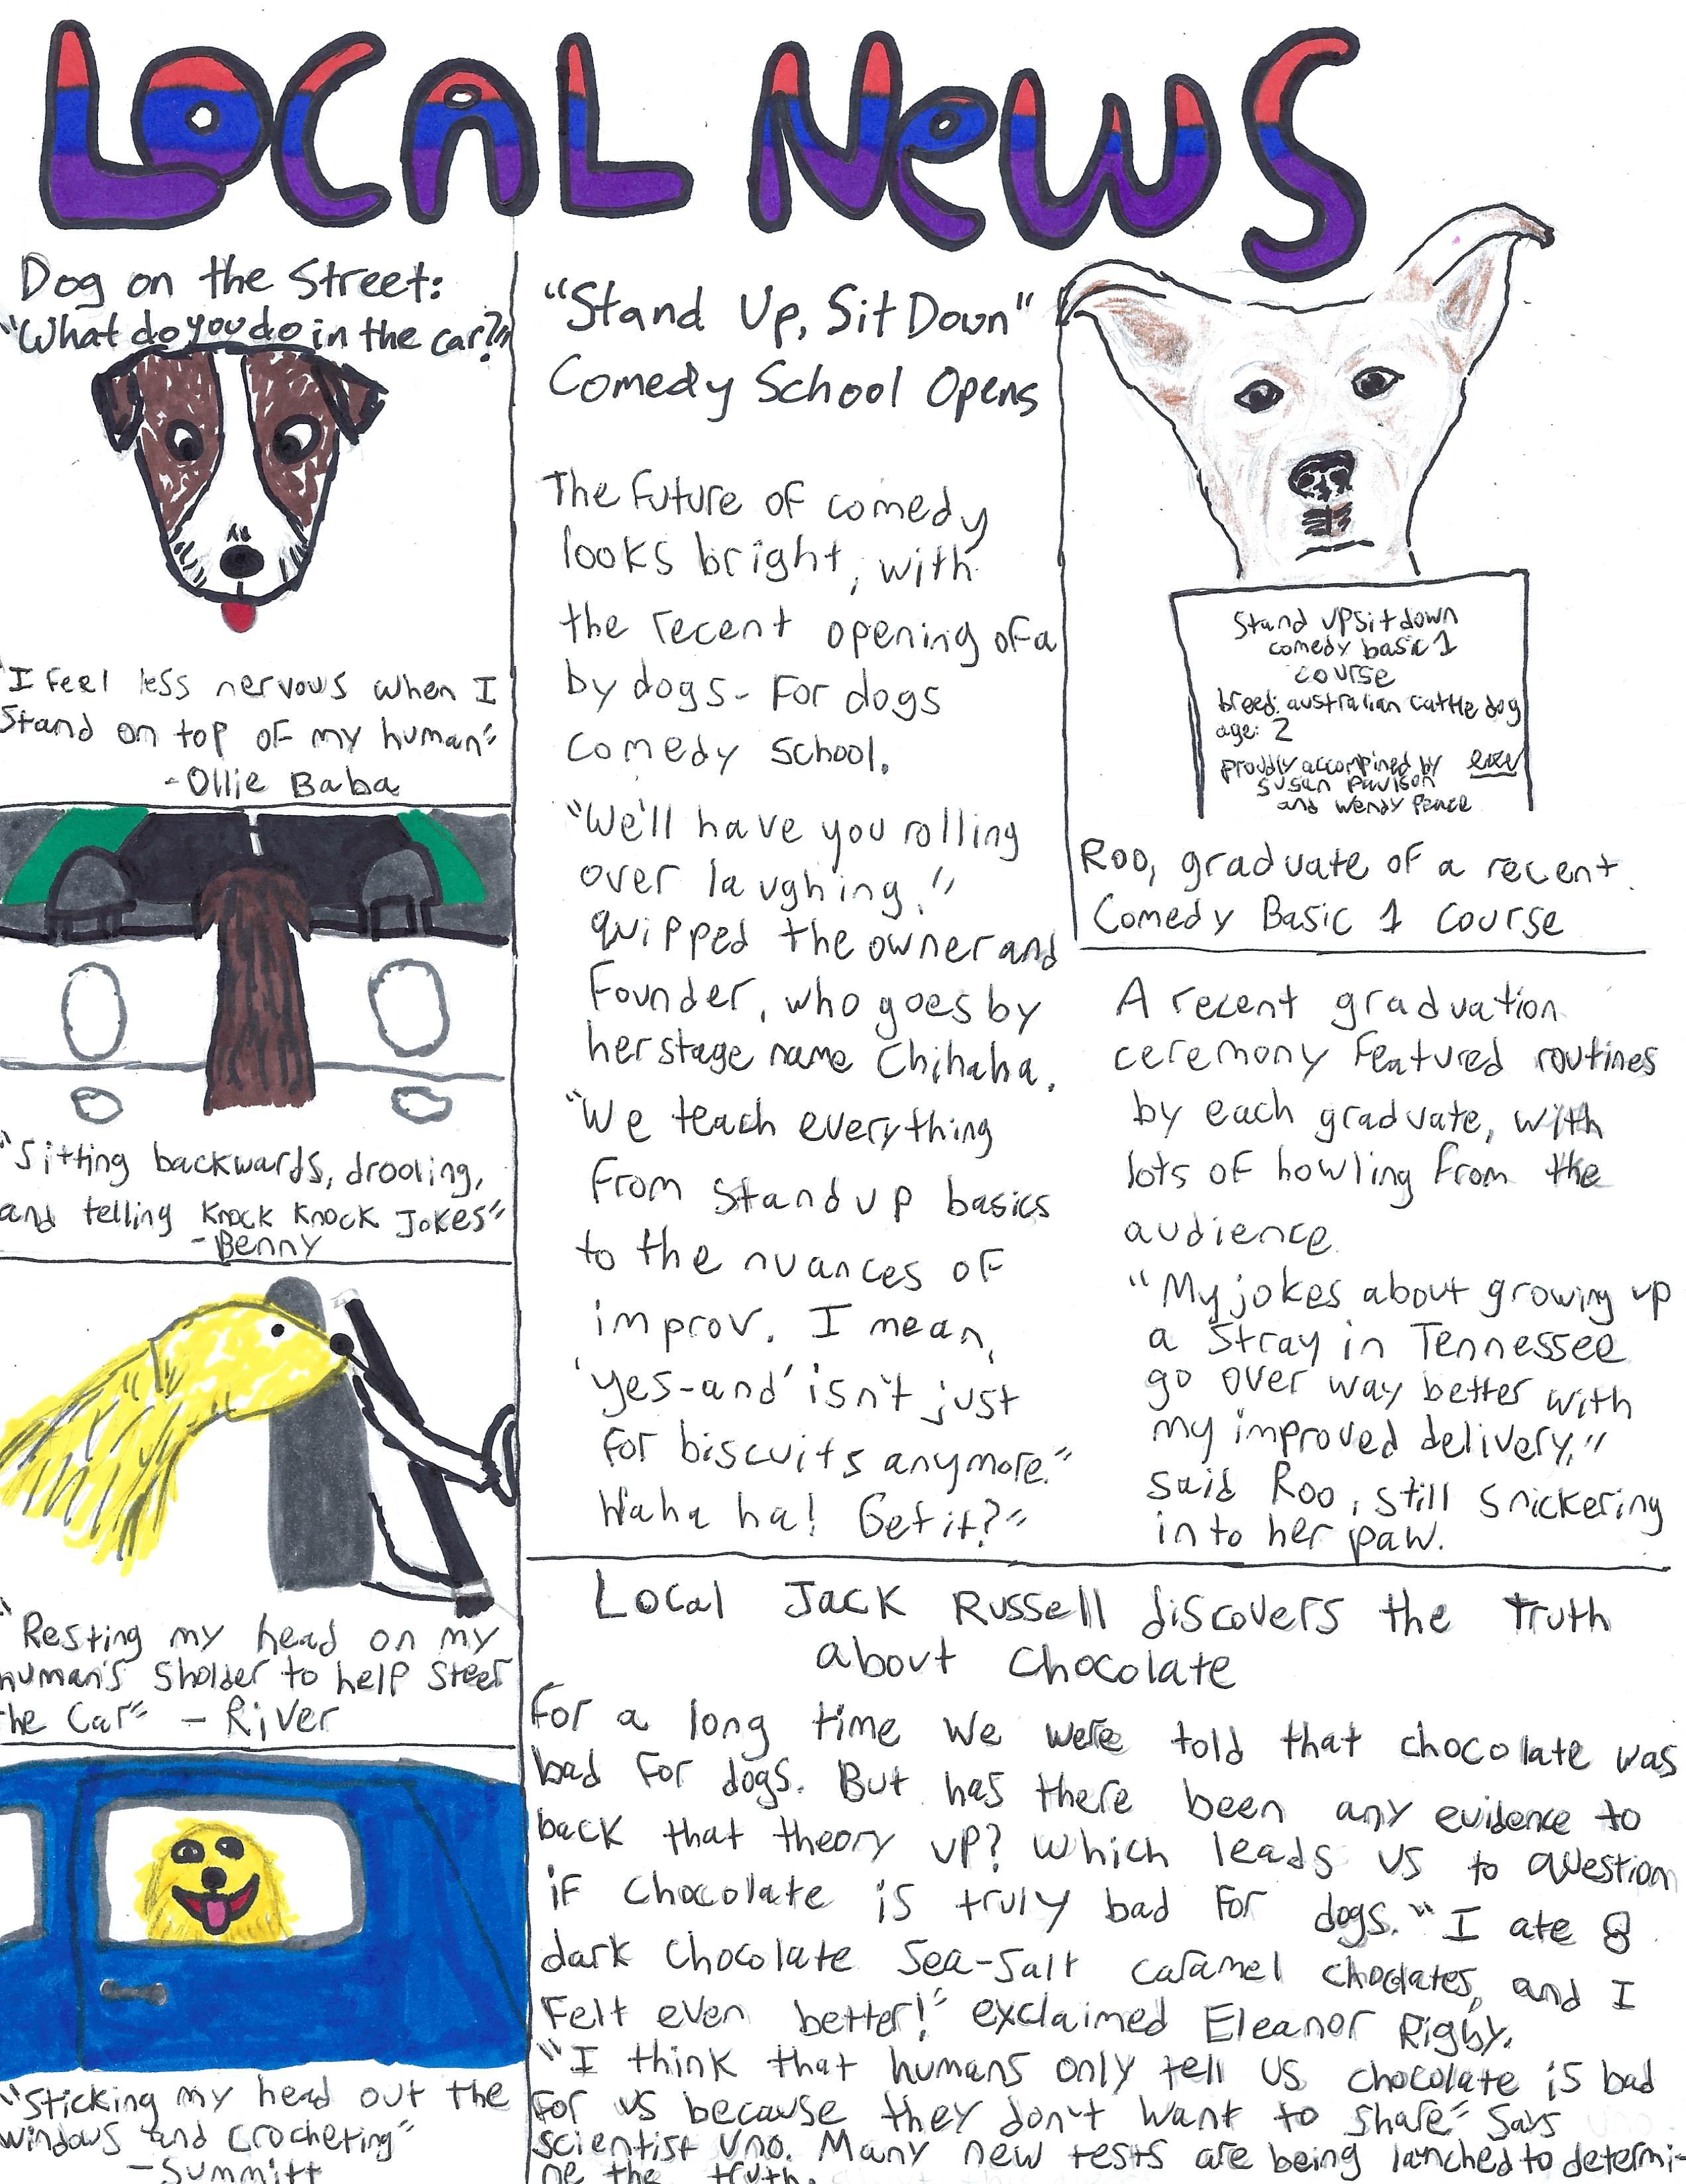 LOCAL NewS
Dog on the Street:
"What do you do in the car?"
"I feel less nervous when I
Stand on top of my human"
-Ollie Baba
"Sitting backwards, drooling,
and telling Knock Knock Jokes"
-Benny
"Resting my head on my
human's Sholder to help Steer
the Car" - River
"Sticking my head out the
windows and crocheting"
-Summitt
"Stand Up, Sit Down"
Comedy School Opens
The future of comedy
looks bright, with
the recent opening of a
by dogs- For dogs
comedy school.
"We'll have you rolling
over laughing!"
quipped the owner and
Founder, who goes by
her stage name Chihaha.
"We teach everything
From standup basics
to the nuances of
improv. I mean,
'yes-and' isn't just
for biscuits anymore."
Haha ha! Get it?"
Stand UpSit down
comedy basic 1
course
breed: australian cattle dog
age: 2
proudly accompined by
susan
and wendy Peace
Roo, graduate of a recent
Comedy Basic 1 Course
A recent graduation
ceremony featured routines
by each graduate, with
lots of howling from the
audience.
"My jokes about growing up
a Stray in Tennessee
go over way better with
my improved delivery,"
said Roo, still snickering
into her paw.
Local Jack Russell discovers the Truth
about chocolate
For a long time we were told that chocolate was
bad for dogs. But has there been any evidence to
back that theory up? Which leads us to question
if chocolate is truly bad for dogs. "I ate 8
dark chocolate Sea-Salt caramel choclates, and I
Felt even better!" exclaimed Eleanor Rigby.
"I think that humans only tell us chocolate is bad
For us because they don't want to share" Says
scientist Uno. Many new tests are being lanched to determi-
ne the truth.